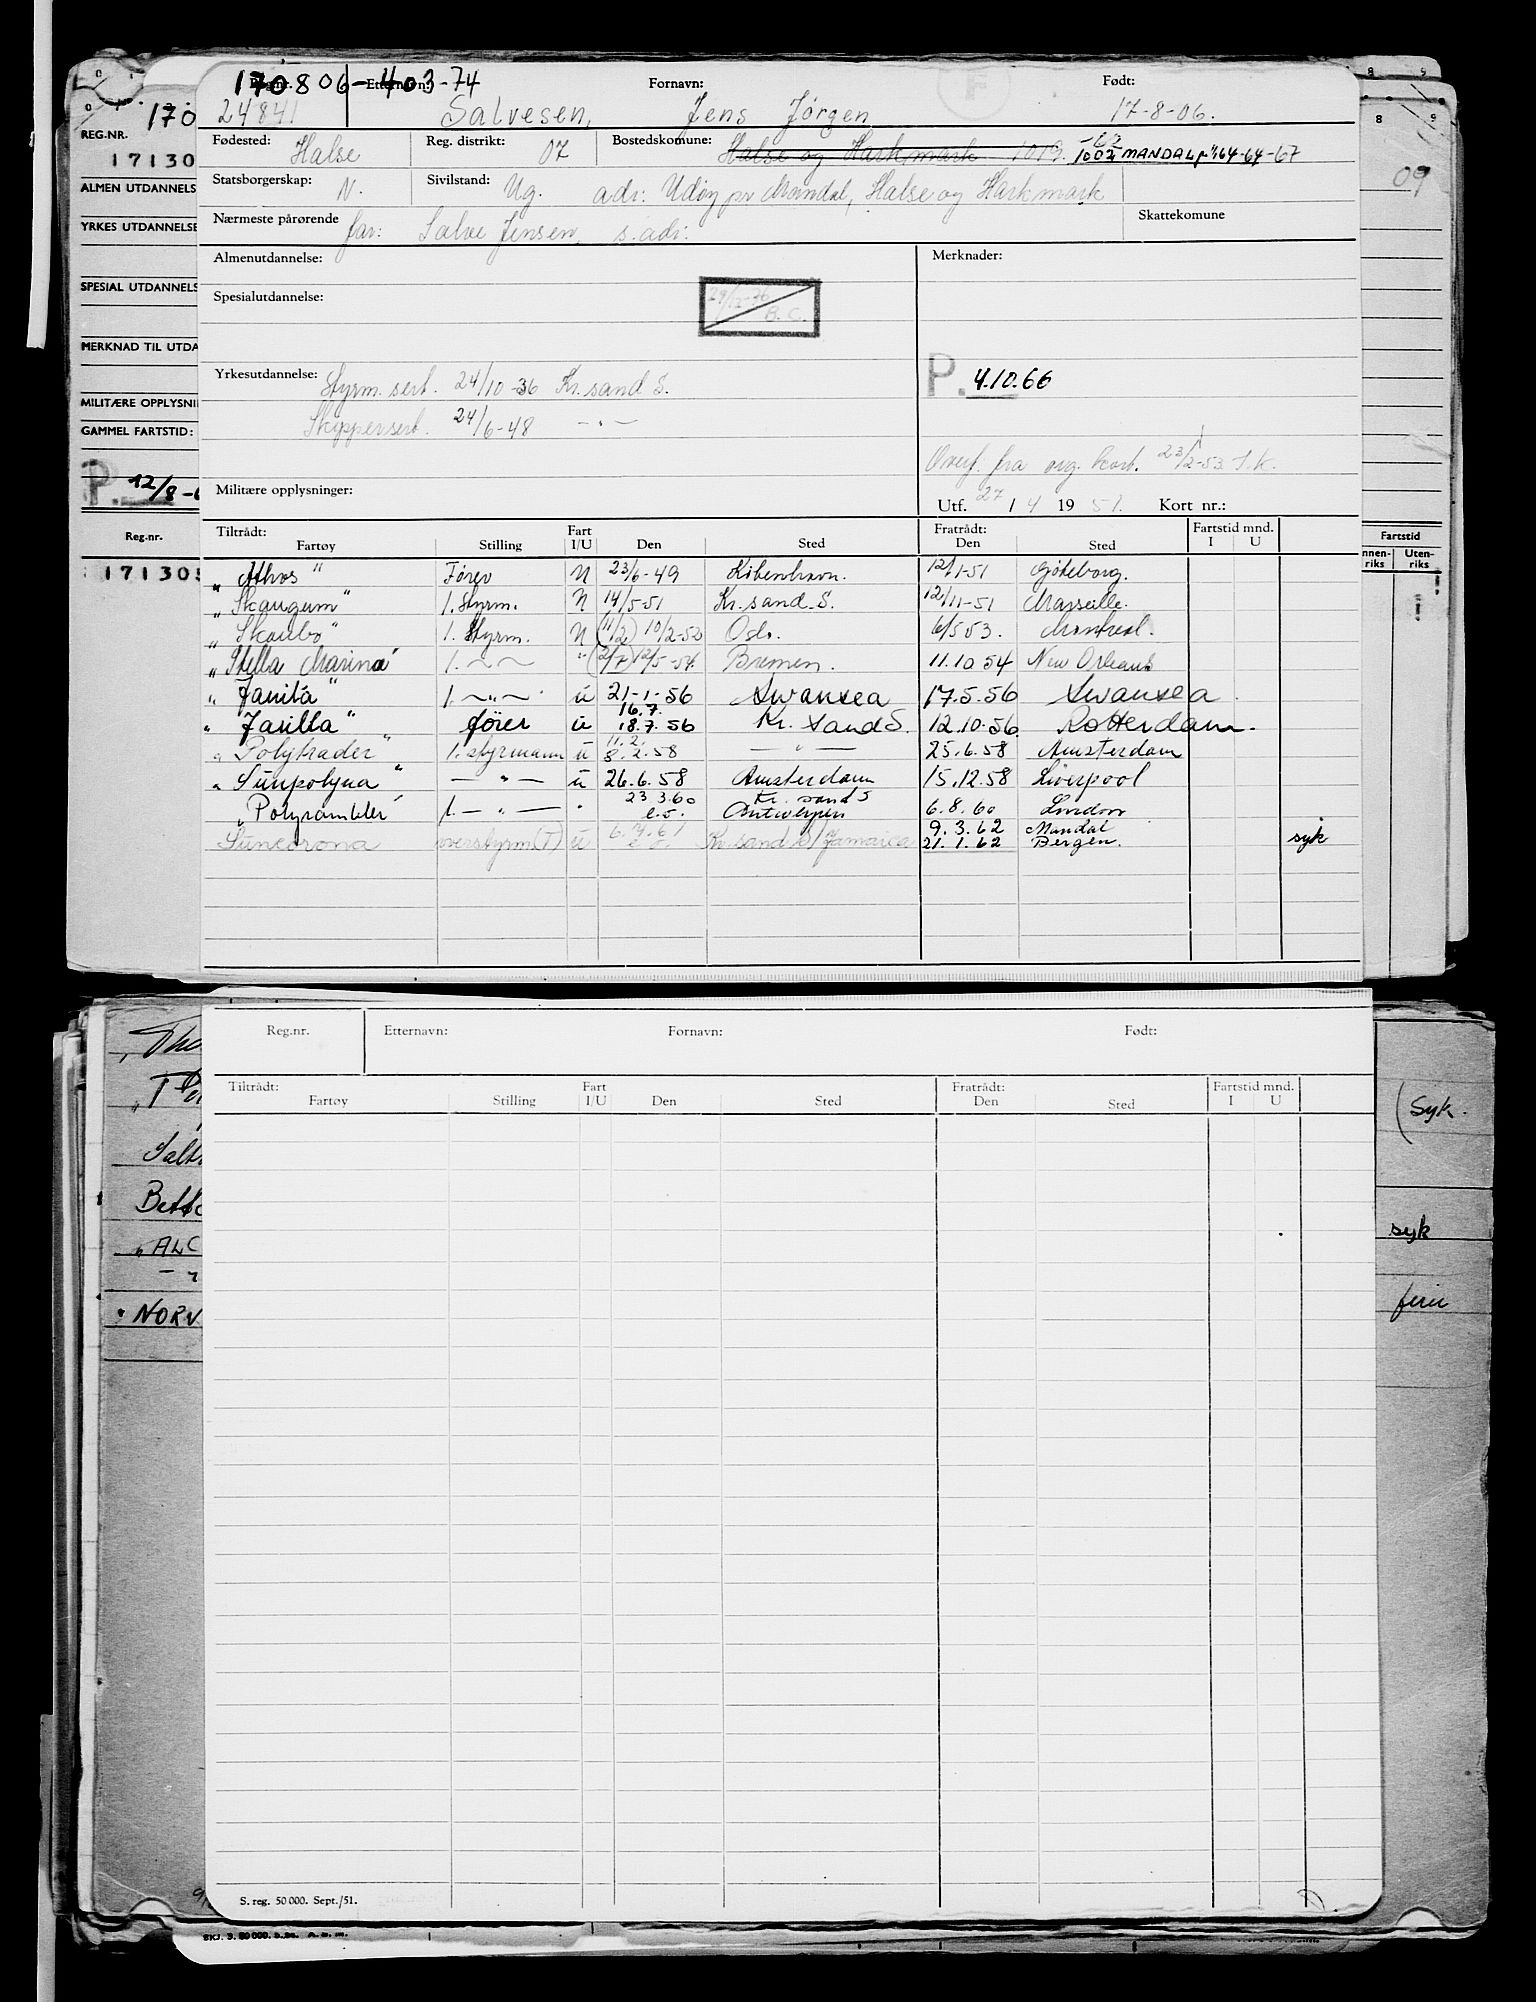 170806-403-74
Reg.nr. Etternavn: Fornavn: Født:
24841 Salvesen, Jens Jørgen 17-8-06.
Fødested: Halse Reg. distrikt: 07 Bostedskomune: Halse og Harkmark 1019. 1002 MANDAL 64-64-67
Statsborgerskap: N. Sivilstand: Ug. adr: Udøy pr Mandal, Halse og Harkmark
Nærmeste pårørende far: Salve Jensen, s. adr. Skattekomune
Almenutdannelse: Merknader:
Spesialutdannelse: B. C.
Yrkesutdannelse: Styrm. sert. 24/10-36 Kr. sand S. P. 4.10.66
Skippersert. 24/6-48 — " —
Overf. fra org. kort. 23/2-53 S.k.
Militære opplysninger: Utf. 27 / 4 19 51. Kort nr.:
Tiltrådt: Fart Fratrådt: Fartstid mnd.
Fartøy Stilling I/U Den Sted Den Sted I U
"Athos" Fører U 23/6-49 København. 12/1-51 Göteborg.
"Skaugum" 1. Styrm. U 14/5-51 Kr. sand. S. 12/11-51 Marseille.
"Skaubo" 1. Styrm. U (11/2) 10/2-52 Oslo. 6/5 53. Montreal.
"Stella Marina" 1. — " — " 12/5-54. Bremen. 11.10 54 New Orleans
"Janita" 1. — " — u 21-1-56 Swansea 17.5.56 Swansea.
"Jarilla" fører u 16.7. 18.7.56 Kr. Sand S. 12.10.56. Rotterdam.
"Polytrader" 1. styrmann u 11.2. 8.2.58 — " — 25.6.58 Amsterdam
"Sunpolyna" — " — u 26.6.58 Amsterdam 15.12.58 Liverpool
"Polyrambler" 1. — " — " 23 3.60 e.o. Kr. sand S Antwerpen 6.8.60 London
Suncorona overstyrm(T) u e.o. Kr. sand S/Jamaica 9.3.62 21.1.62 Mandal Bergen. syk
170
REG.NR.
17130
ALMEN UTDANNELS
YRKES UTDANNELSE
SPESIAL UTDANNELS
MERKNAD TIL UTDA
MILITÆRE OPPLYSNI
GAMMEL FARTSTID:
P. 12/8-6
Reg.nr.
171305
8 9
8 9
09
Fartstid
nnen-riks Uten-riks
Reg.nr. Etternavn: Fornavn: Født:
Tiltrådt: Fart Fratrådt: Fartstid mnd.
Fartøy Stilling I/U Den Sted Den Sted I U
S. reg. 50 000. Sept./51.
"ALC
"NORV
(Syk.
syk
ferie